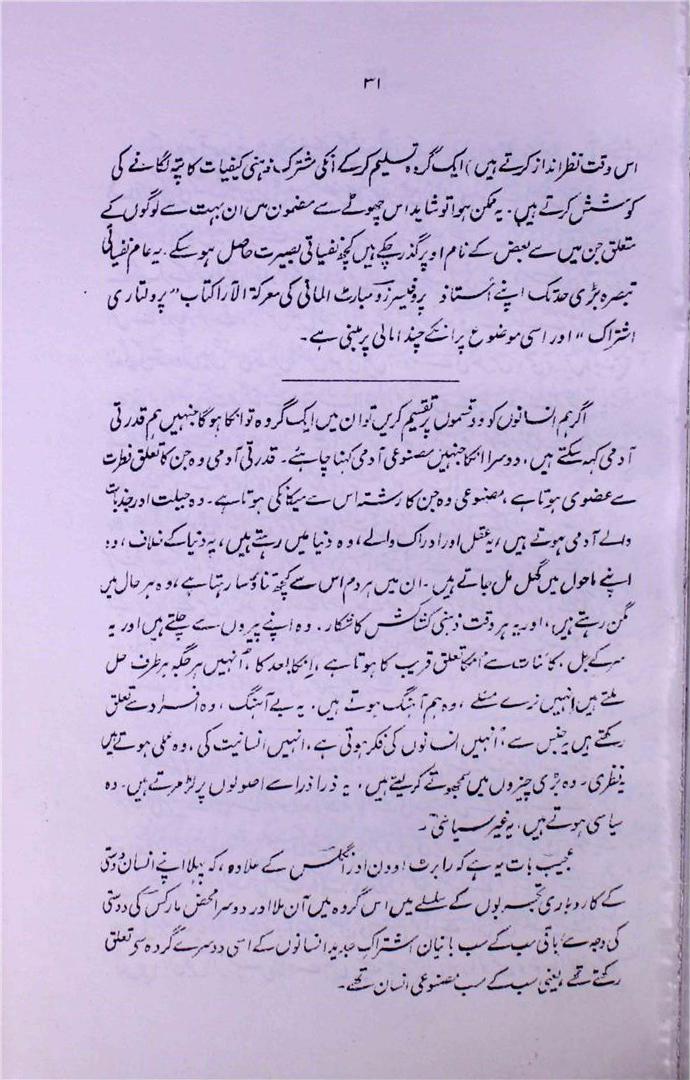 ۳۱
اس وقت نظر انداز کرتے ہیں) ایک گروہ تسلیم کرکے انکی مشترک ذہنی کیفیات کا پتہ لگانے کی
کوشش کرتے ہیں۔ یہ ممکن ہوا تو شاید اس چھوٹے سے مضمون میں ان بہت سے لوگوں کے
متعلق جن میں سے بعض کے نام اوپر گذر چکے ہیں کچھ نفسیاتی بصیرت حاصل ہو سکے۔ یہ عام نفسیاتی
تبصرہ بڑی حد تک اپنے اُستاذ پروفیسر زومبارٹ المانی کی معرکۃ الآرا کتاب "پرولتاری
اشتراک" اور اسی موضوع پر انکے چند امالی پر مبنی ہے۔
اگر ہم انسانوں کو دو قسموں پر تقسیم کریں تو ان میں ایک گروہ تو انکا ہوگا جنہیں ہم قدرتی
آدمی کہہ سکتے ہیں، دوسرا انکا جنہیں مصنوعی آدمی کہنا چاہئے۔ قدرتی آدمی وہ جن کا تعلق فطرت
سے عضوی ہوتا ہے، مصنوعی وہ جن کا رشتہ اس سے میکانکی ہوتا ہے۔ وہ جبلت اور جذبات
والے آدمی ہوتے ہیں، یہ عقل اور ادراک والے، وہ دنیا میں رہتے ہیں، یہ دنیا کے خلاف، وہ
اپنے ماحول میں گھل مل جاتے ہیں۔ ان میں ہر دم اس سے کچھ تناؤ سا رہتا ہے، وہ ہر حال میں
مگن رہتے ہیں، اور یہ ہر وقت ذہنی کشاکش کا شکار۔ وہ اپنے پیروں سے چلتے ہیں اور یہ
سر کے بل، کائنات سے انکا تعلق قریب کا ہوتا ہے، اِنکا بُعد کا، اُنہیں ہر جگہ ہر طرف حل
ملتے ہیں اِنہیں نرے مسئلے، وہ ہم آہنگ ہوتے ہیں۔ یہ بے آہنگ، وہ افراد سے تعلق
رکھتے ہیں یہ جنس سے، اُنہیں انسانوں کی فکر ہوتی ہے، انہیں انسانیت کی، وہ عملی ہوتے ہیں
یہ نظری۔ وہ بڑی چیزوں میں سمجھوتے کر لیتے ہیں، یہ ذرا ذرا سے اصولوں پر لڑ مرتے ہیں۔ وہ
سیاسی ہوتے ہیں، یہ غیر سیاسی۔
عجیب بات یہ ہے کہ رابرٹ اوون اور انگلس کے علاوہ، کہ پہلا اپنے انسان دوستی
کے کاروباری تجربوں کے سلسلے میں اس گروہ میں آن ملا اور دوسرا محض مارکس کی دوستی
کی وجہ سے باقی سب کے سب بانیان اشتراک جدید انسانوں کے اسی دوسرے گروہ سے تعلق
رکھتے تھے، یعنی سب کے سب مصنوعی انسان تھے۔